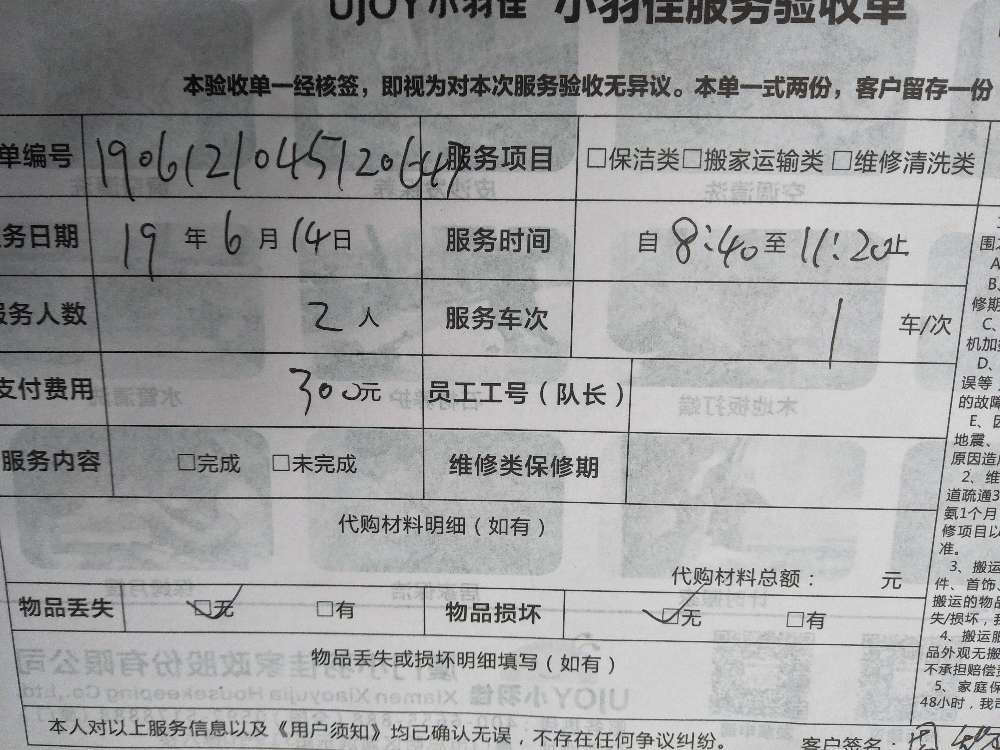 UJOY小羽佳 小羽佳服务验收单
本验收单一经核签，即视为对本次服务验收无异议。本单一式两份，客户留存一份
单编号 190612104512064 服务项目 □保洁类□搬家运输类 □维修清洗类
务日期 19 年 6 月 14 日 服务时间 自 8:40 至 11:20 止
服务人数 2 人 服务车次 1 车/次
支付费用 300元 员工工号（队长）
服务内容 □完成 □未完成 维修类保修期
代购材料明细（如有）
代购材料总额： 元
物品丢失 ☑无 □有 物品损坏 ☑无 □有
物品丢失或损坏明细填写（如有）
本人对以上服务信息以及《用户须知》均已确认无误，不存在任何争议纠纷。
客户签名：
围
A
B、
修期
C、
机加
D、
误等
的故障
E、因
地震、
原因造成
2、维
道疏通3
氨1个月
修项目以
准。
3、搬运
件、首饰、
搬运的物品
失/损坏，我
4、搬运服
品外观无搬
不承担赔偿
5、家庭保
48小时，我司